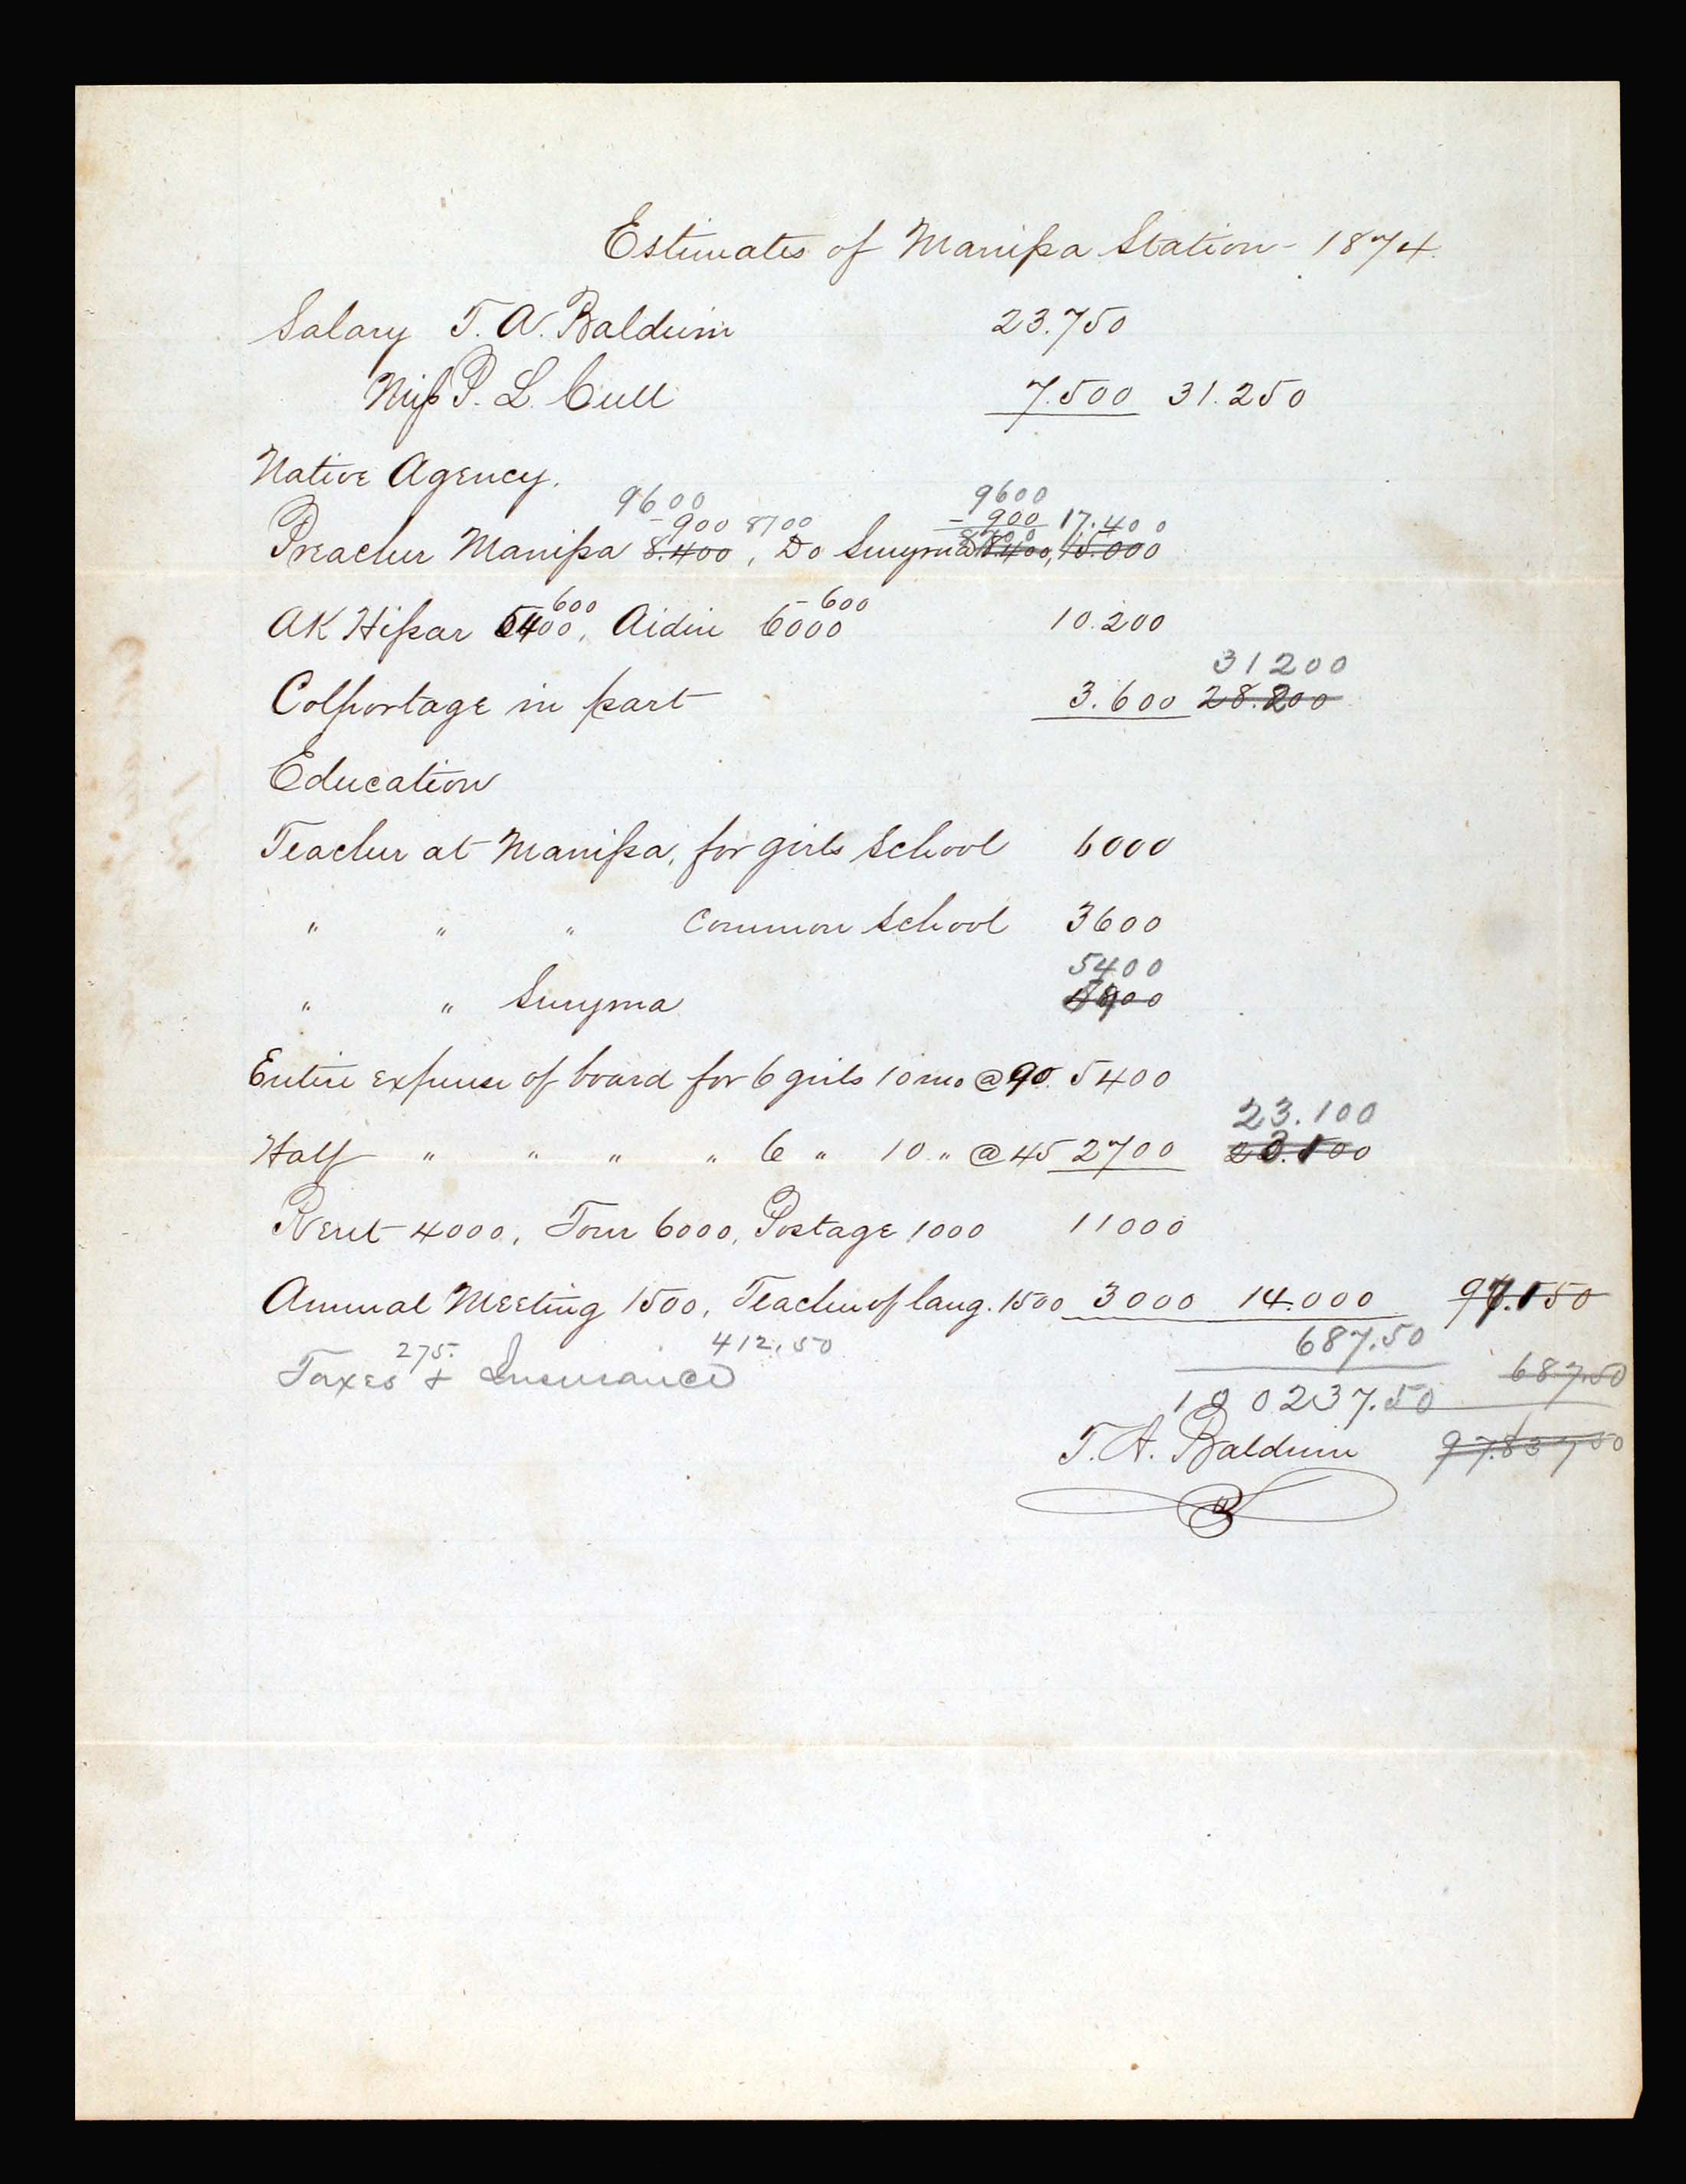 Estimates of Manissa Station - 1874.
Salary T. A. Baldwin 23.750
Miss P. L. Cull 7.500 31.250
Native Agency.
9600 9600
- 900 8700 - 900 17.400
Preacher Manissa 8.400, Do Smyrna 8.400, 15.000
600 - 600
AK Hissar 5400, Aidin 6000 10.200
31200
Colportage in part 3.600 28.800
Education
Teacher at Manissa, for girls School 6000
" " " Common School 3600
5400
" " Smyrna
Entire expense of board for 6 girls 10 mo @ 90. 5400
23.100
Half " " " " 6 " 10 " @ 45 2700
Rent 4000, Tour 6000, Postage 1000 11000
Annual Meeting 1500, Teacher of lang. 1500 3000 14.000 97.150
275. 412.50 687.50
Taxes & Insurance 687.50
100237.50
T. A. Baldwin 97.837 50